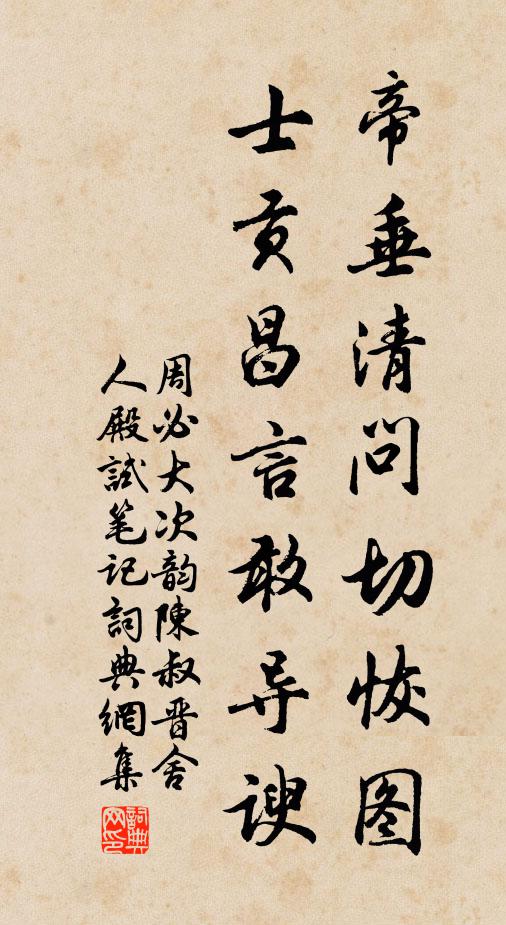 帝垂清问切恢图
士贡昌言敢导谀
周必大次韵陳叔晋舍
人殿試笔记詞典網集
詞典网印